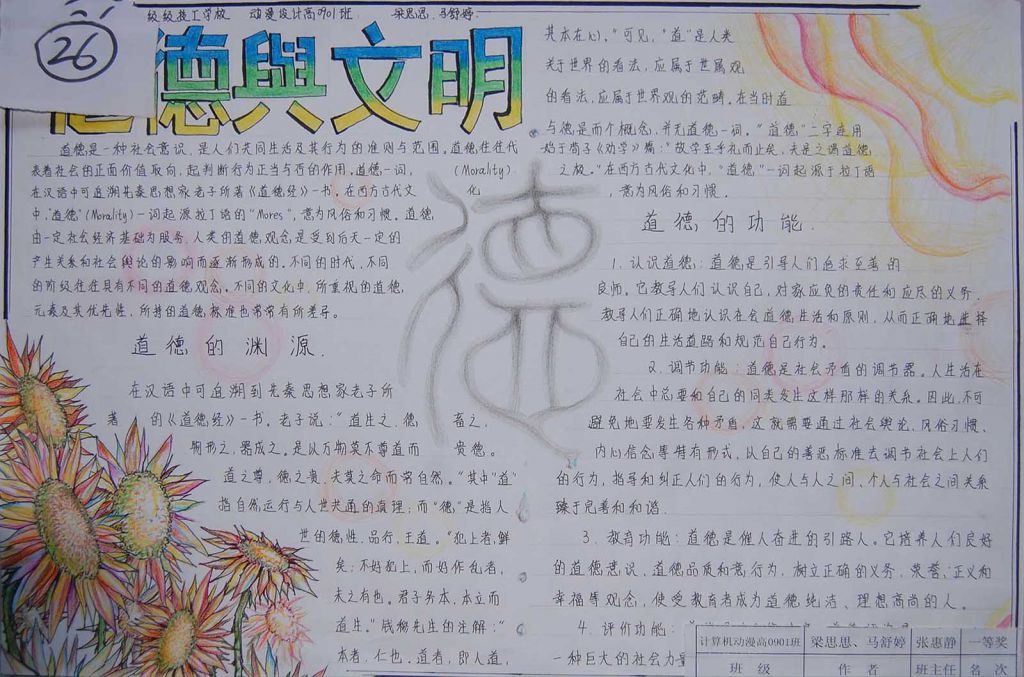 级技工学校 动漫设计高0901班 梁思思、马舒婷
26
德與文明
道德是一种社会意识,是人们共同生活及其行为的准则与范围。道德往往代
表着社会的正面价值取向,起判断行为正当与否的作用。道德一词,
在汉语中可追溯先秦思想家老子所著《道德经》一书。在西方古代文
化
中,"道德"(Morality)一词起源拉丁语的"Mores",意为风俗和习惯。道德
由一定社会经济基础为服务,人类的道德观念是受到后天一定的
产生关系和社会舆论的影响而逐渐形成的。不同的时代,不同
的阶级往往具有不同的道德观念。不同的文化中,所重视的道德,
元素及其优先性,所持的道德标准也常常有所差异。
道德的渊源.
在汉语中可追溯到先秦思想家老子所
著 的《道德经》一书。老子说:"道生之,德 畜之,
形之,器成之。是以万物莫不尊道而 贵德。
道之尊,德之贵,夫莫之命而常自然。"其中"道"
指自然运行与人世共通的真理;而"德"是指人
世的德性,品行,王道。"犯上者,鲜
矣;不好犯上,而好作乱者,
未之有也。君子务本,本立而
道生。"钱穆先生的注解:"
本者,仁也。道者,即人道,
德
其本在心。"可见,"道"是人类
关于世界的看法,应属于世属观
的看法,应属于世界观的范畴。在当时道
与德是而个概念,并无道德一词。"道德"二字连用
始于荀子《劝学》篇:"故学至乎礼而止矣,夫是之谓道德
(Morality) 之极。"在西方古代文化中,"道德"一词起源于拉丁语
,意为风俗和习惯.
道德的功能.
1. 认识道德:道德是引导人们追求至善的
良师。它教导人们认识自己,对家应负的责任和应尽的义务,
教导人们正确地认识社会道德生活和原则,从而正确地选择
自己的生活道路和规范自己行为。
2. 调节功能:道德是社会矛盾的调节器。人生活在
社会中总要和自己的同类发生这样那样的关系。因此,不可
避免地要发生各种矛盾,这就需要通过社会舆论、风俗习惯、
内心信念等特有形式,从自己的善恶标准去调节社会上人们
的行为,指导和纠正人们的行为,使人与人之间、个人与社会之间关系
臻于完善和和谐.
3. 教育功能:道德是催人奋进的引路人。它培养人们良好
的道德意识、道德品质和意行为,树立正确的义务、荣誉、正义和
幸福等观念,使受教育者成为道德纯洁、理想高尚的人。
4. 评价功能:
一种巨大的社会力量
计算机动漫高0901班 梁思思、马舒婷 张惠静 一等奖
班 级 作 者 班主任 名 次